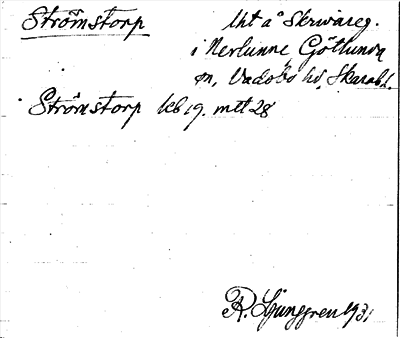 Strömstorp
lht å Skrivareg.
i Nerlunne, Götlunda
sn, Vadsbo hd, Skarabl.
Strömstorp kb 19. mtl 28
R. Ljunggren 1931